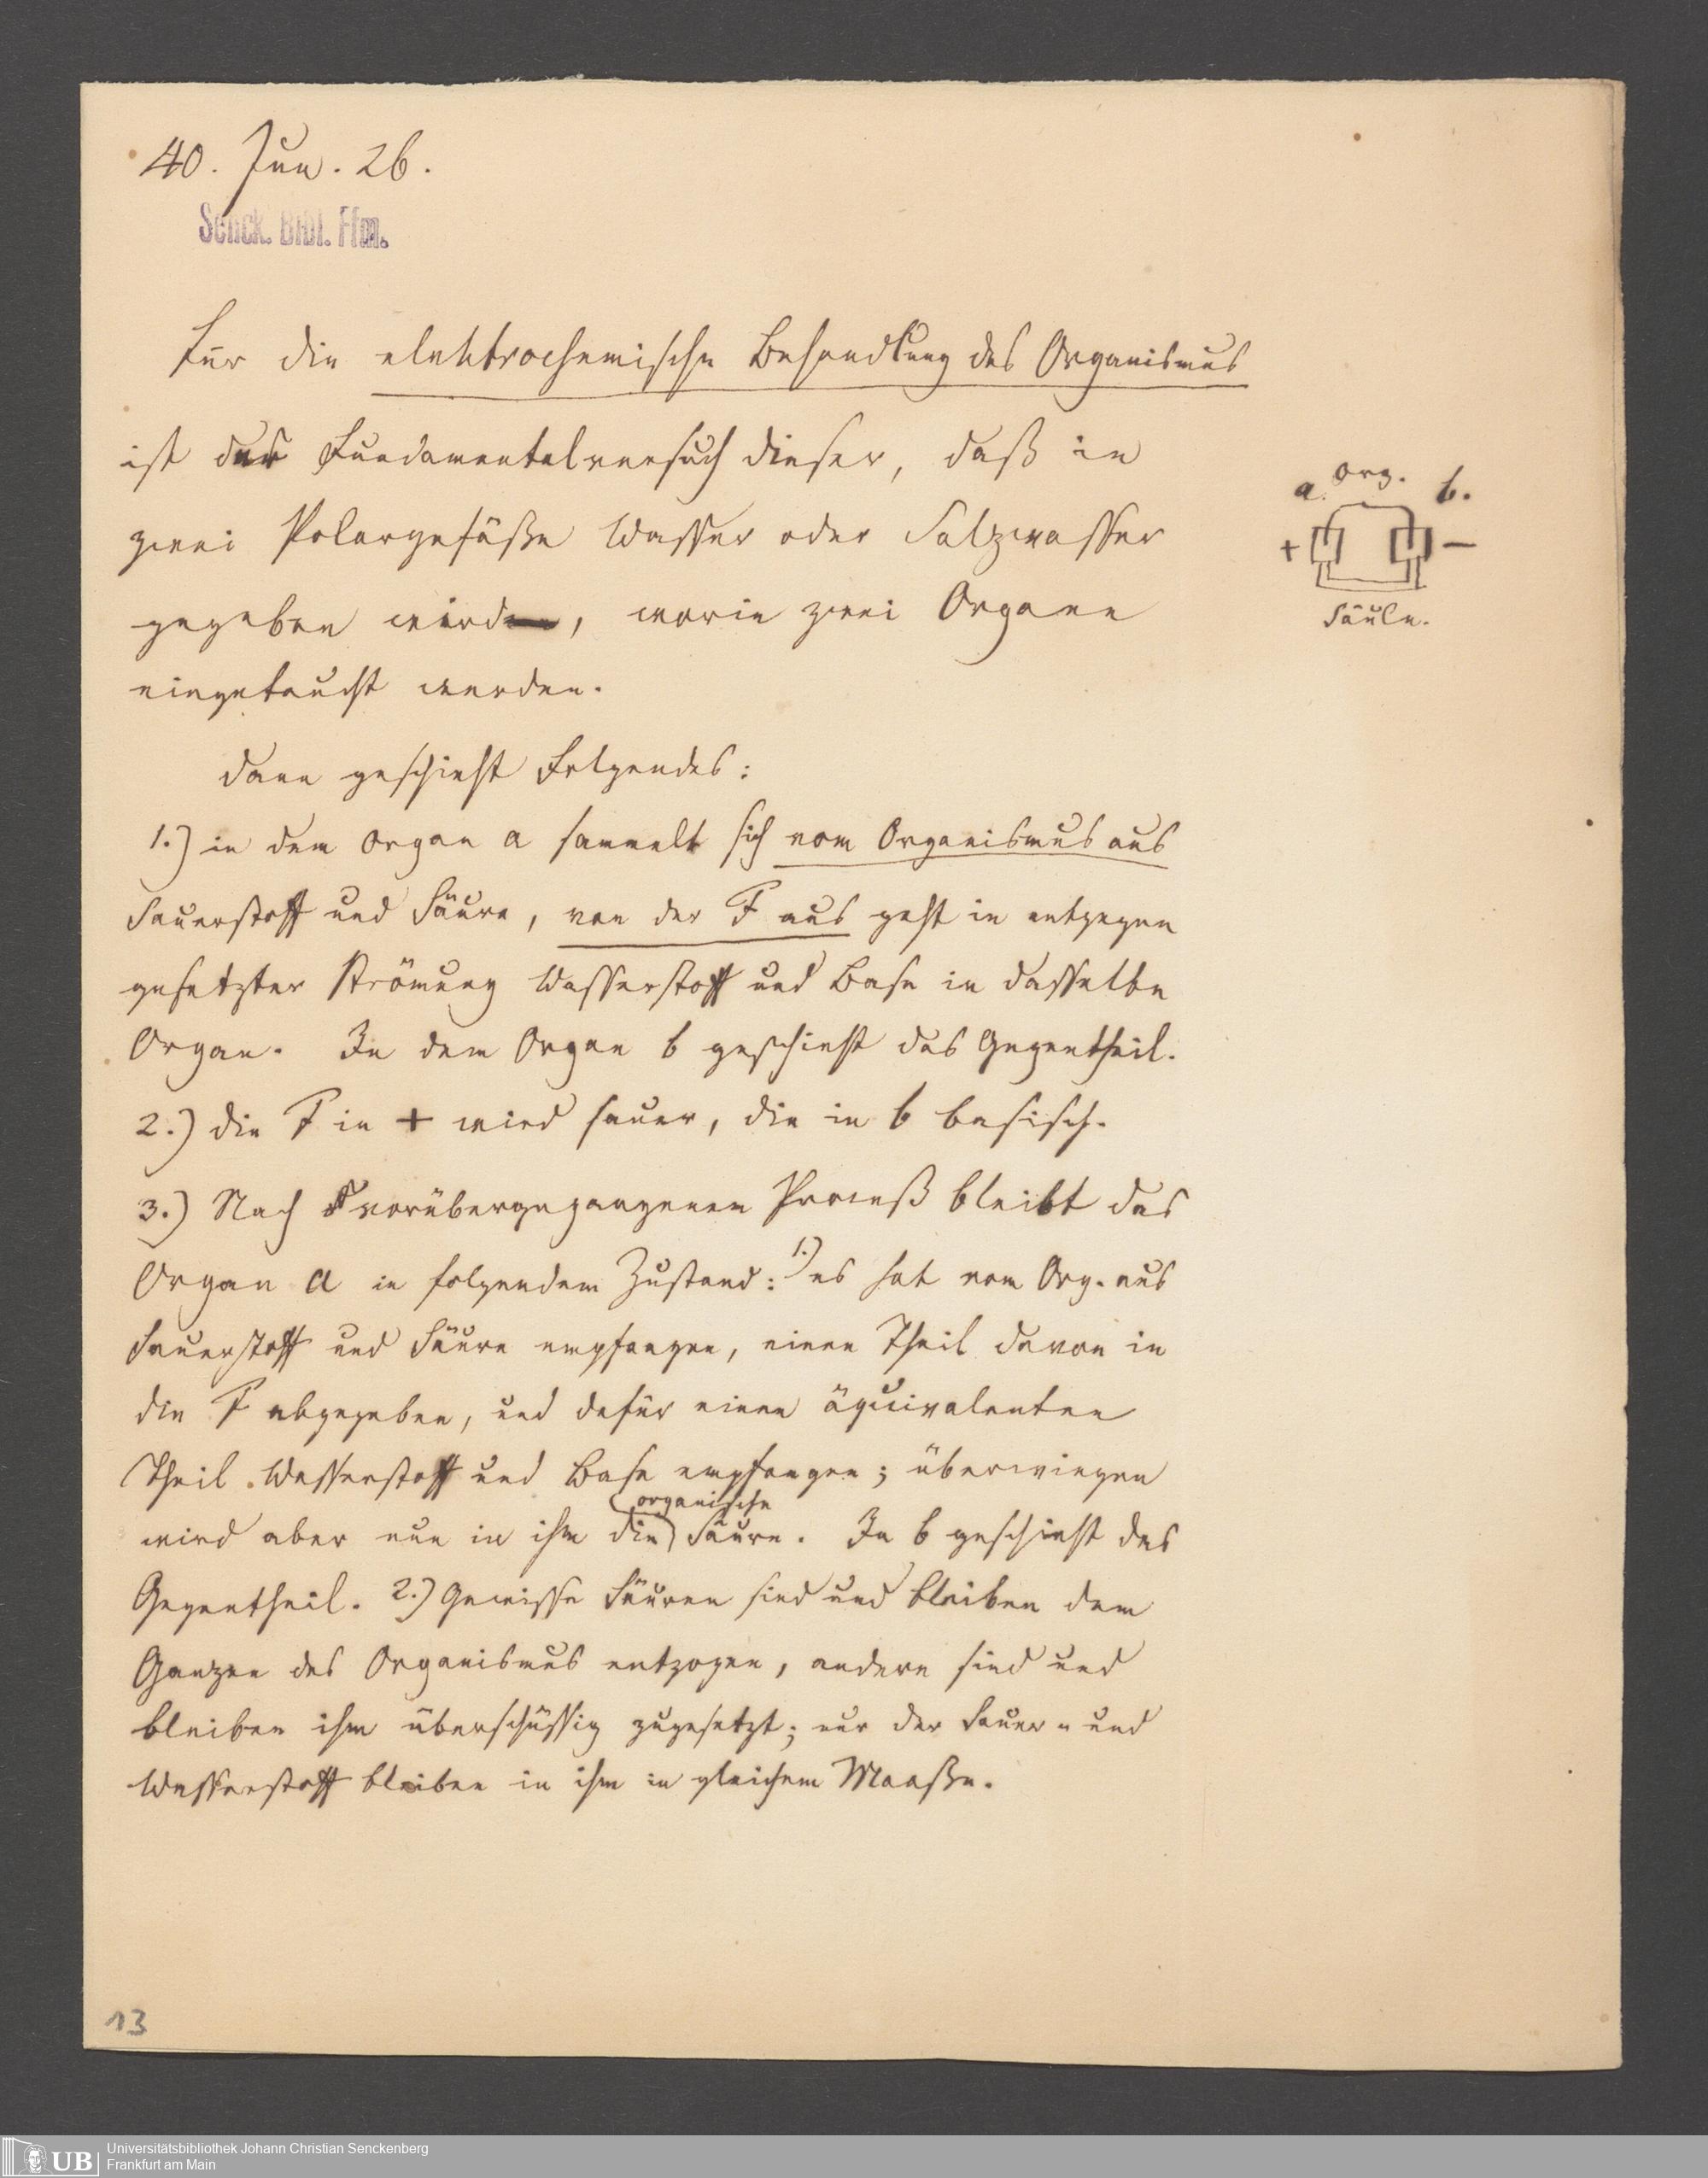 40. Jun. 26.
Senck. Bibl. Ffm.
Für die elektrochemische Behandlung des Organismus
ist der Fundamentalversuch dieser, daß in
zwei Polargefäße Wasser oder Salzwasser
gegeben wird, worin zwei Organe
eingetaucht werden.
a. Org. b.
+ –
Säule.
Dann geschieht Folgendes:
1.) in dem Organ a sammelt sich vom Organismus aus
Sauerstoff und Säure, von der F aus geht in entgegen
gesetzter Strömung Wasserstoff und Base in dasselbe
Organ. In dem Organ b geschieht das Gegentheil.
2.) die F in + wird sauer, die in b basisch.
3.) Nach vorübergegangenem Proceß bleibt das
Organ a in folgendem Zustand: 1.) es hat vom Org. aus
Sauerstoff und Säure empfangen, einen Theil davon in
die F abgegeben, und dafür einen äquivalenten
Theil Wasserstoff und Base empfangen; überwiegen
wird aber nun in ihm die organische Säure. In b geschieht das
Gegentheil. 2.) Gewisse Säuren sind und bleiben dem
Ganzen des Organismus entzogen, andere sind und
bleiben ihm überschüssig zugesetzt; nur der Sauer- und
Wasserstoff bleiben in ihm in gleichem Maaße.
13
UB Universitätsbibliothek Johann Christian Senckenberg
Frankfurt am Main